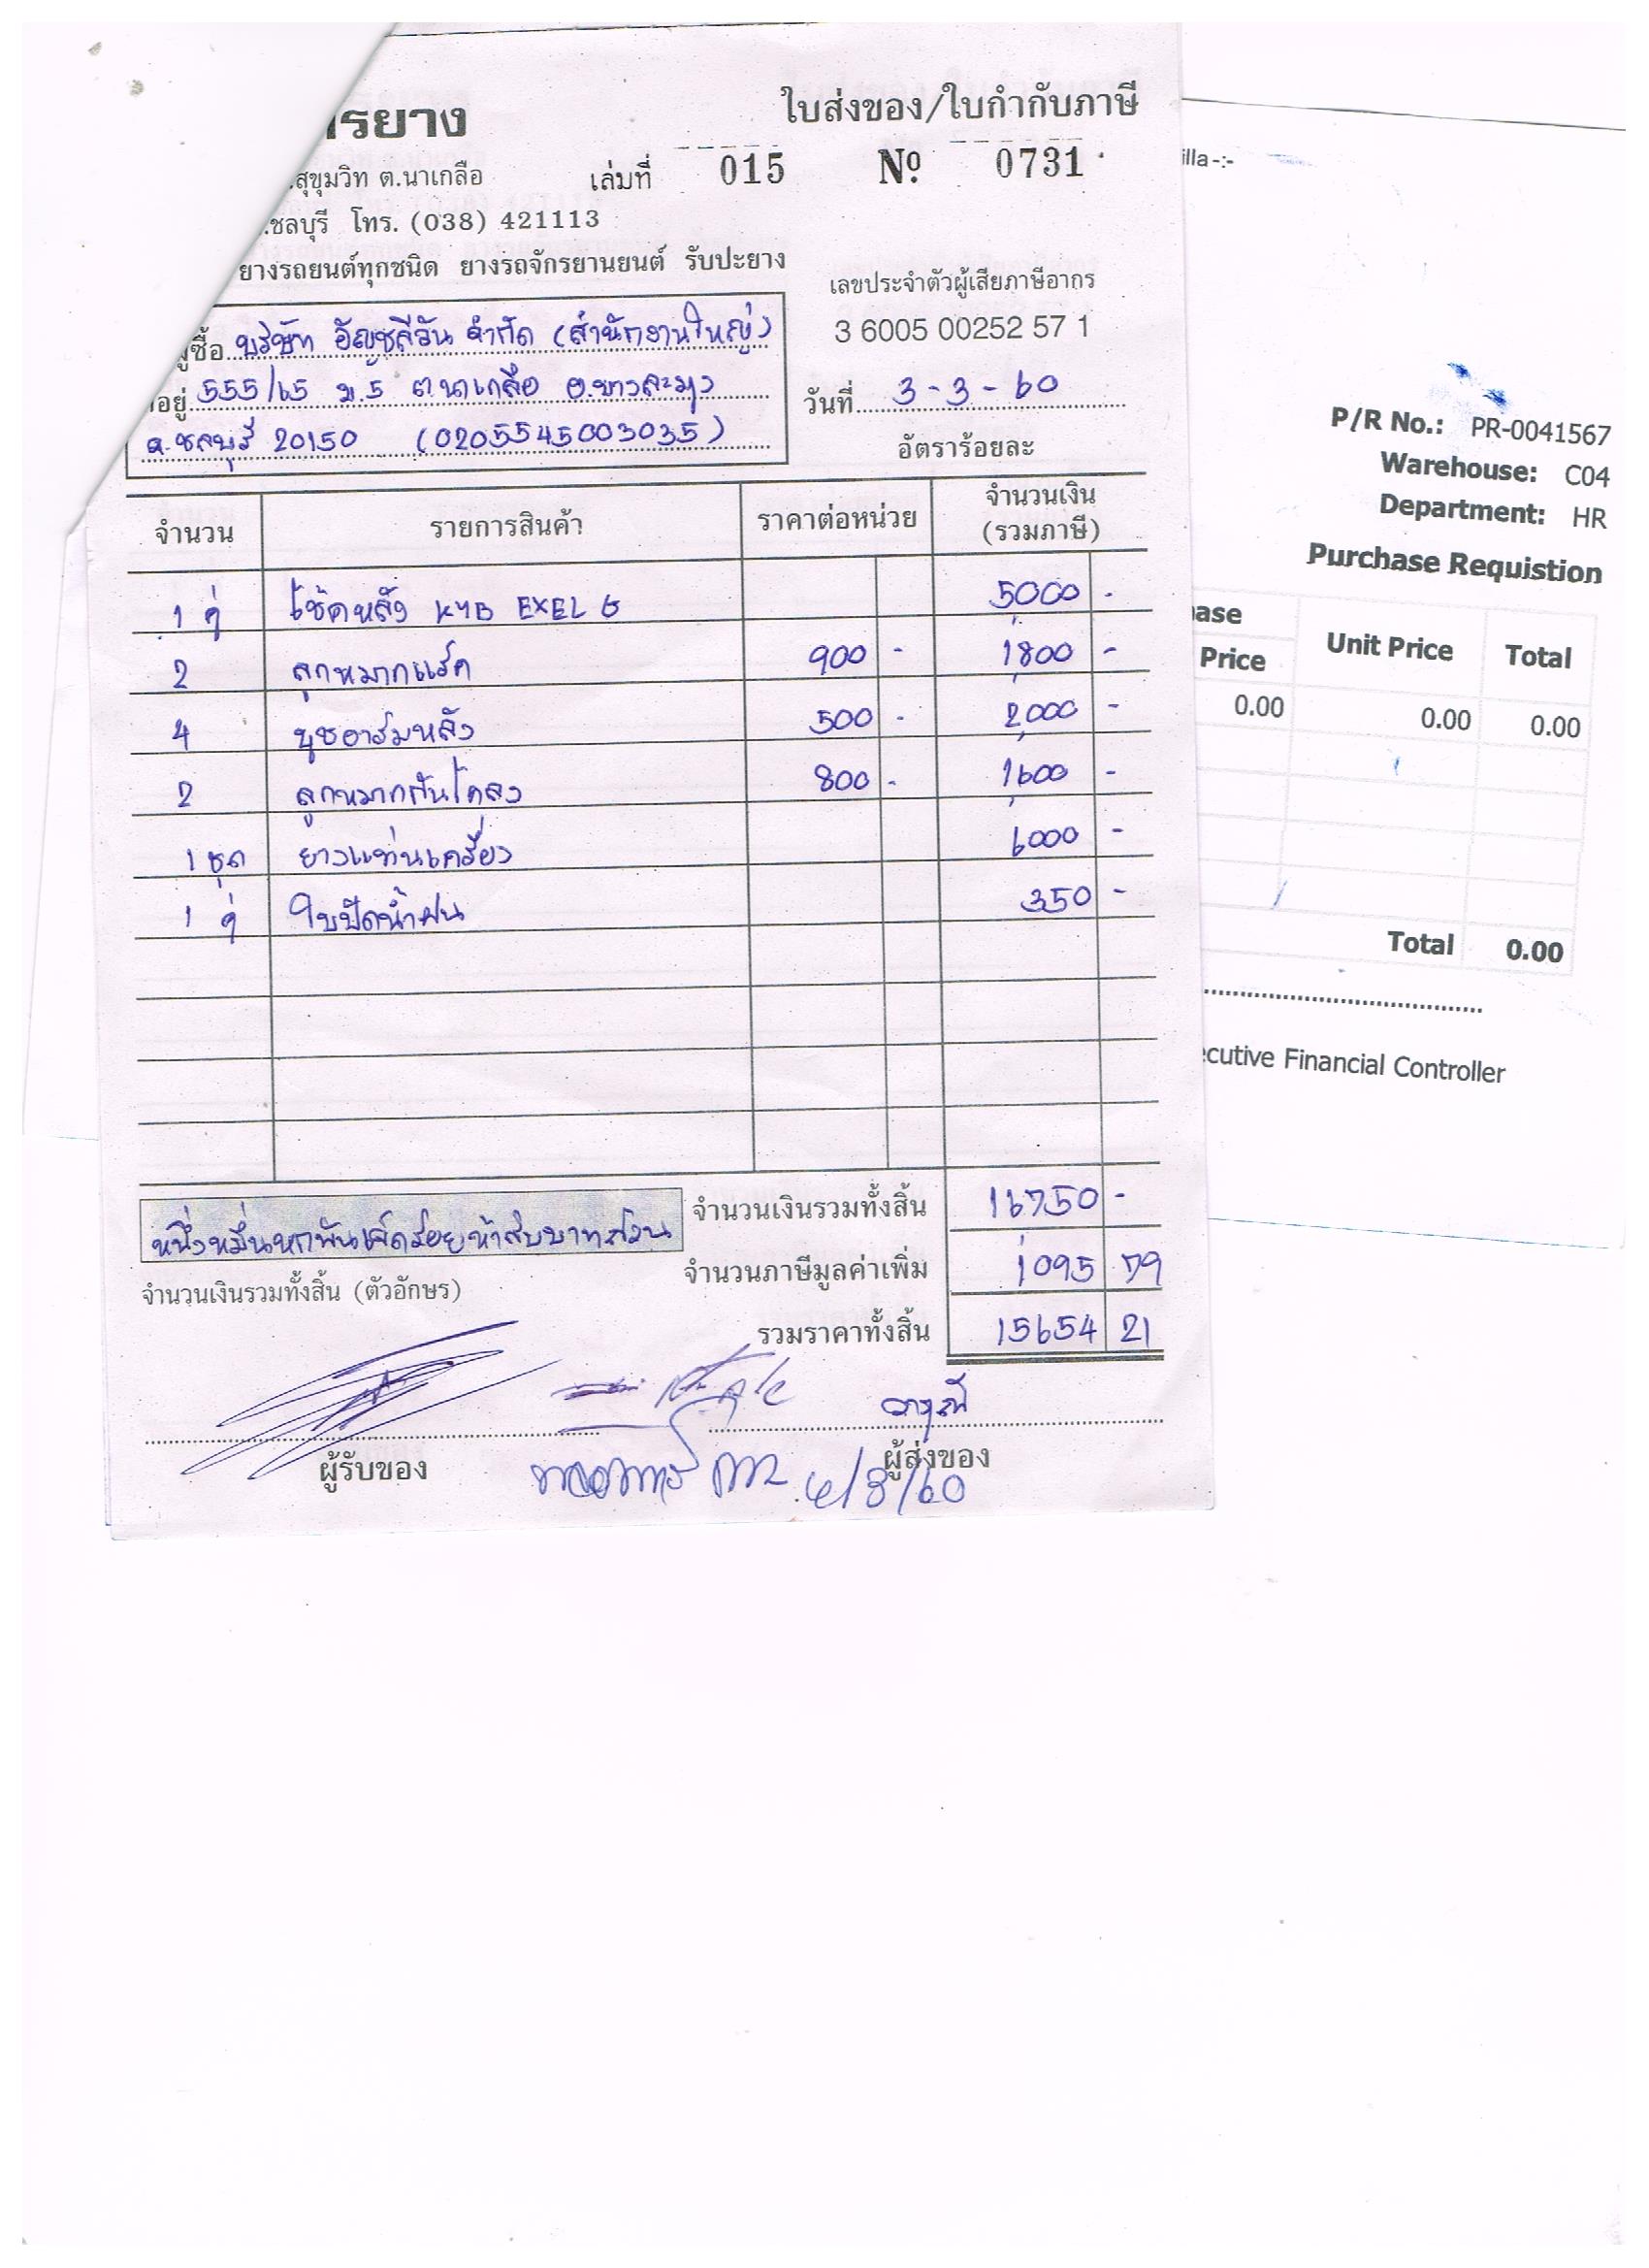 รยาง
ใบส่งของ/ใบกำกับภาษี
.สุขุมวิท ต.นาเกลือ
เล่มที่ 015 Nº 0731
.ชลบุรี โทร. (038) 421113
ยางรถยนต์ทุกชนิด ยางรถจักรยานยนต์ รับปะยาง
เลขประจำตัวผู้เสียภาษีอากร
3 6005 00252 57 1
ผู้ซื้อ บริษัท อัญชลีวัน จำกัด (สำนักงานใหญ่)
อยู่ 555/65 ม.5 ต.นาเกลือ อ.บางละมุง
จ.ชลบุรี 20150 (0205545003035)
วันที่ 3-3-60
อัตราร้อยละ
จำนวน รายการสินค้า ราคาต่อหน่วย จำนวนเงิน (รวมภาษี)
1 คู่ โช้คหลัง KYB EXEL G 5000 -
2 ลูกหมากแร็ค 900 - 1,800 -
4 บูชอาร์มหลัง 500 - 2,000 -
2 ลูกหมากกันโคลง 800 - 1,600 -
1 ชุด ยางแท่นเครื่อง 6000 -
1 คู่ ใบปัดน้ำฝน 350 -
จำนวนเงินรวมทั้งสิ้น 16750 -
หนึ่งหมื่นหกพันเจ็ดร้อยห้าสิบบาทถ้วน
จำนวนภาษีมูลค่าเพิ่ม 1,095 79
จำนวนเงินรวมทั้งสิ้น (ตัวอักษร)
รวมราคาทั้งสิ้น 15654 21
ผู้รับของ
ผู้ส่งของ
4/3/60
illa -:-
P/R No.: PR-0041567
Warehouse: C04
Department: HR
Purchase Requistion
ase
Price Unit Price Total
0.00 0.00 0.00
Total 0.00
ecutive Financial Controller